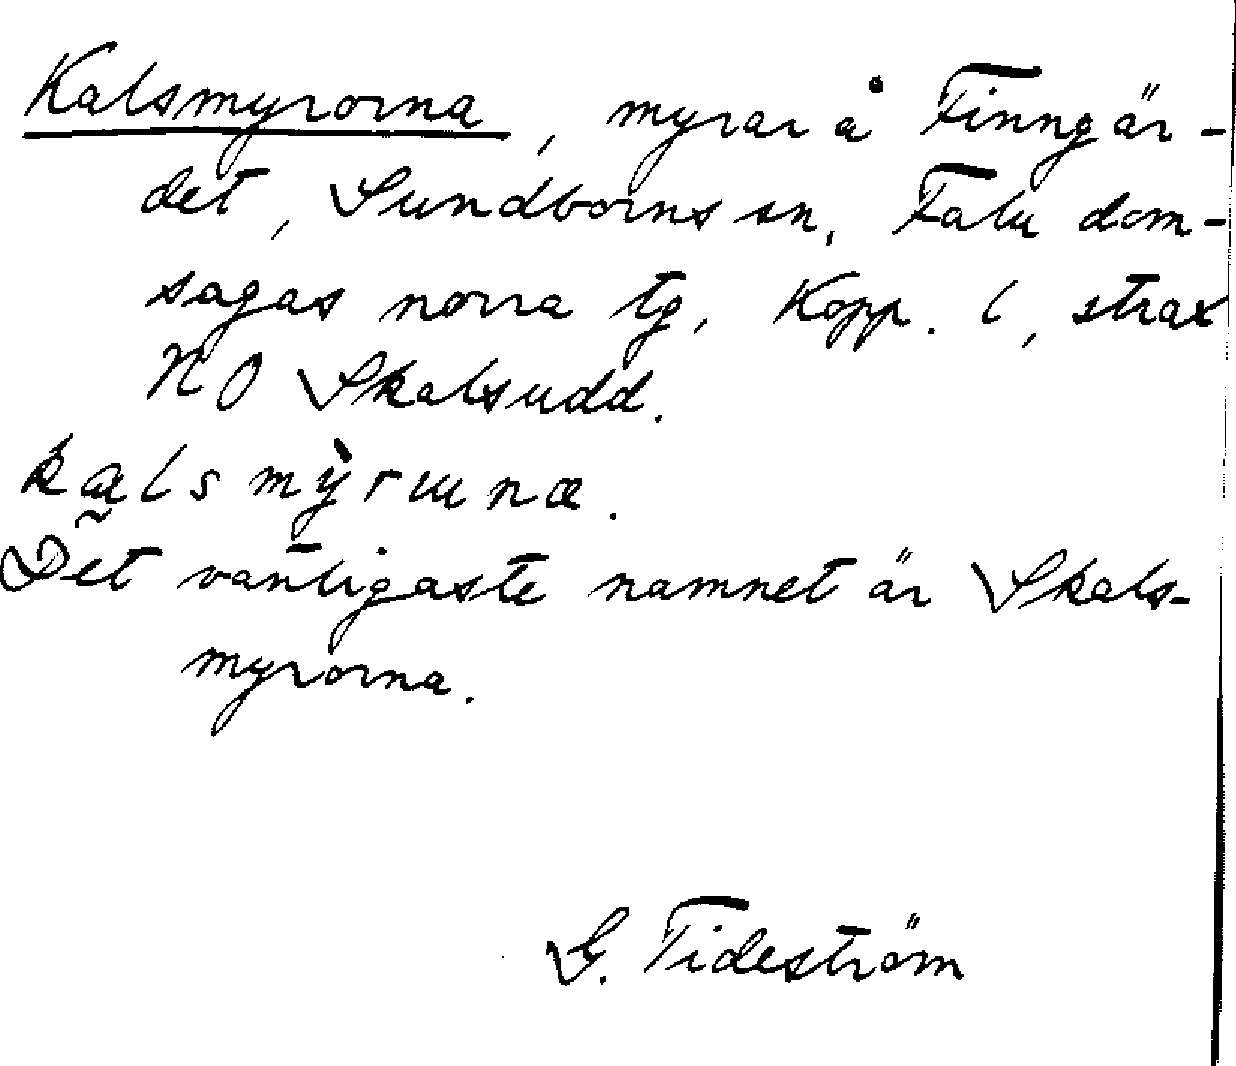 Kalsmyrorna, myrar å Finngär-
det, Sundborns sn, Falu dom-
sagas norra tg, Kopp. l, strax
NO Skalsudd.
Det vanligaste namnet är Skals-
myrorna.
G. Tideström